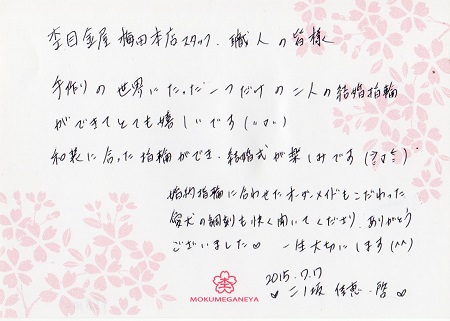 杢目金屋 梅田本店スタッフ、職人の皆様
手作りの世界にたった一つだけの二人の結婚指輪
ができてとても嬉しいです(^o^)
和装に合った指輪ができ、結婚式が楽しみです(^o^)
婚約指輪に合わせたオーダーメイドもこだわった
愛犬の調刻も快く聞いてくださり、ありがとう
ございました♡ 一生大切にします(^^)
2015.7.17
♡二ノ坂 佳恵・啓♡
MOKUMEGANEYA